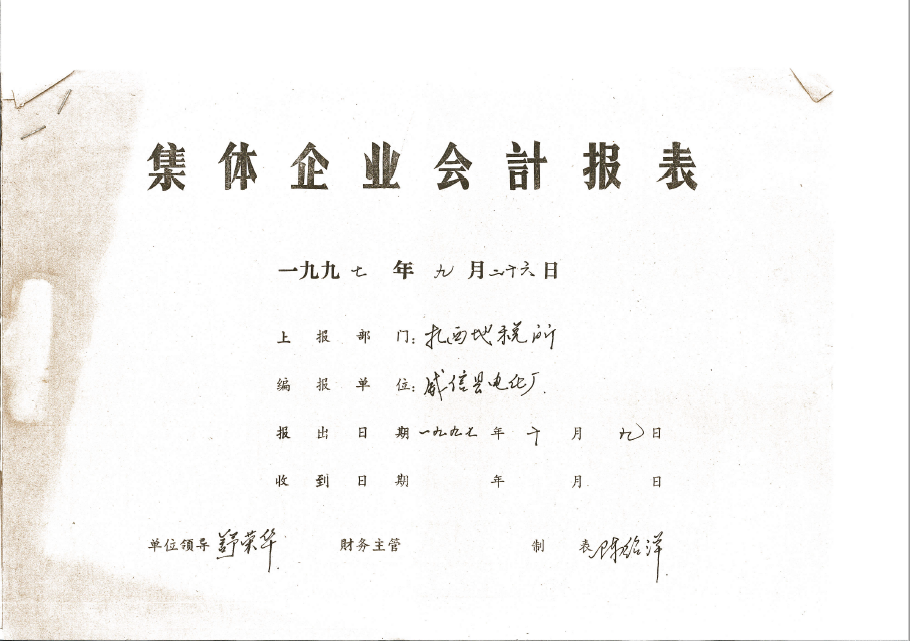 集体企业会計报表
一九九七年九月二十六日
上报部门：扎西地税所
编报单位：威信县电化厂.
报出日期一九九七年十月九日
收到日期 年 月 日
单位领导舒荣华 财务主管 制表陈绍洋